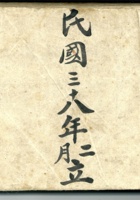 民國三八年二月立